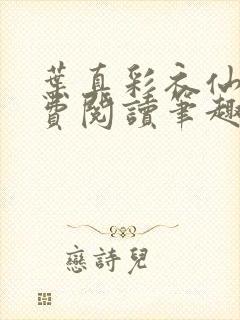 葉真彩衣仙
費閱讀筆趣
戀詩兒